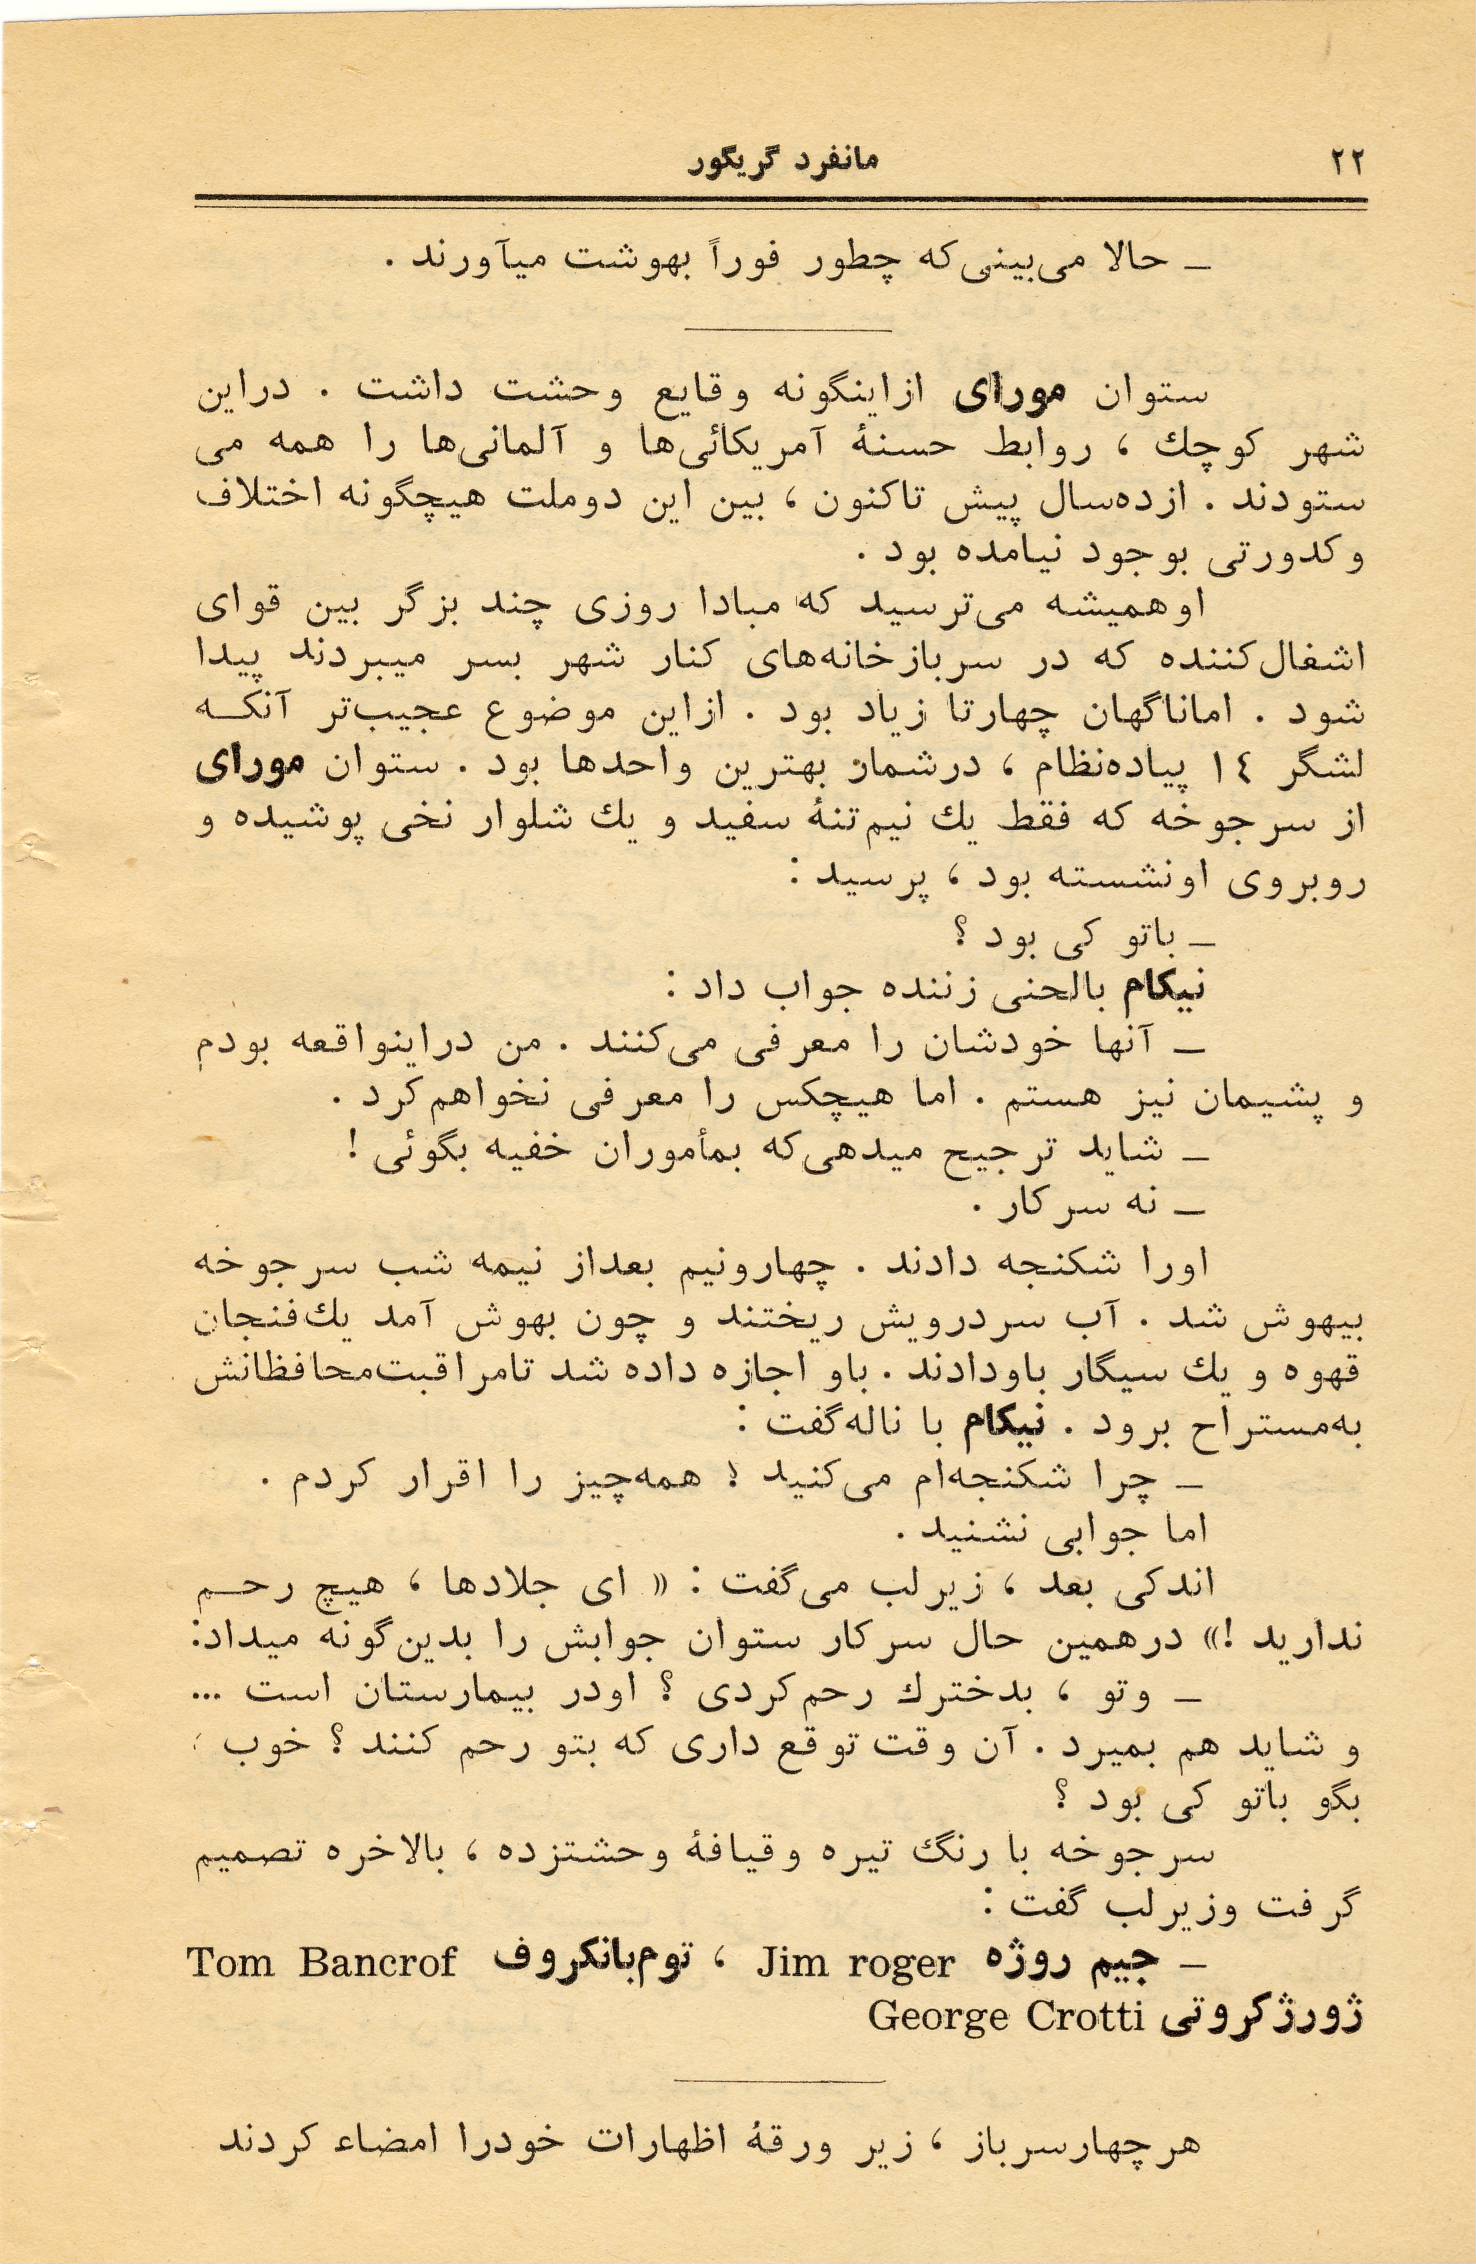 ۲۲
مانفرد گریگور
ـ حالا می‌بینی‌که چطور فوراً بهوشت میآورند .
ستوان مورای ازاینگونه وقایع وحشت داشت . دراین
شهر کوچك ، روابط حسنهٔ آمریکائی‌ها و آلمانی‌ها را همه می
ستودند . ازده‌سال پیش تاکنون ، بین این دوملت هیچگونه اختلاف
وکدورتی بوجود نیامده بود .
اوهمیشه می‌ترسید که مبادا روزی چند بزگر بین قوای
اشغال‌کننده که در سربازخانه‌های کنار شهر بسر میبردند پیدا
شود . اماناگهان چهارتا زیاد بود . ازاین موضوع عجیب‌تر آنکـه
لشگر ۱٤ پیاده‌نظام ، درشمار بهترین واحدها بود . ستوان مورای
از سرجوخه که فقط یك نیم‌تنهٔ سفید و یك شلوار نخی پوشیده و
روبروی اونشسته بود ، پرسید :
ـ باتو کی بود ؟
نیکام بالحنی زننده جواب داد :
ـ آنها خودشان را معرفی می‌کنند . من دراینواقعه بودم
و پشیمان نیز هستم . اما هیچکس را معرفی نخواهم‌کرد .
ـ شاید ترجیح میدهی‌که بمأموران خفیه بگوئی !
ـ نه سرکار .
اورا شکنجه دادند . چهارونیم بعداز نیمه شب سرجوخه
بیهوش شد . آب سردرویش ریختند و چون بهوش آمد یك‌فنجان
قهوه و یك سیگار باودادند . باو اجازه داده شد تامراقبت‌محافظانش
به‌مستراح برود . نیکام با ناله‌گفت :
ـ چرا شکنجه‌ام می‌کنید ؟ همه‌چیز را اقرار کردم .
اما جوابی نشنید .
اندکی بعد ، زیرلب می‌گفت : « ای جلادها ، هیچ رحـم
ندارید !» درهمین حال سرکار ستوان جوابش را بدین‌گونه میداد:
ـ وتو ، بدخترك رحم‌کردی ؟ اودر بیمارستان است ...
و شاید هم بمیرد . آن وقت توقع داری که بتو رحم کنند ؟ خوب ،
بگو باتو کی بود ؟
سرجوخه با رنگ تیره وقیافهٔ وحشتزده ، بالاخره تصمیم
گرفت وزیرلب گفت :
ـ جیم روژه Jim roger ، توم‌بانکروف Tom Bancrof
ژورژکروتی George Crotti
هرچهارسرباز ، زیر ورقهٔ اظهارات خودرا امضاء کردند